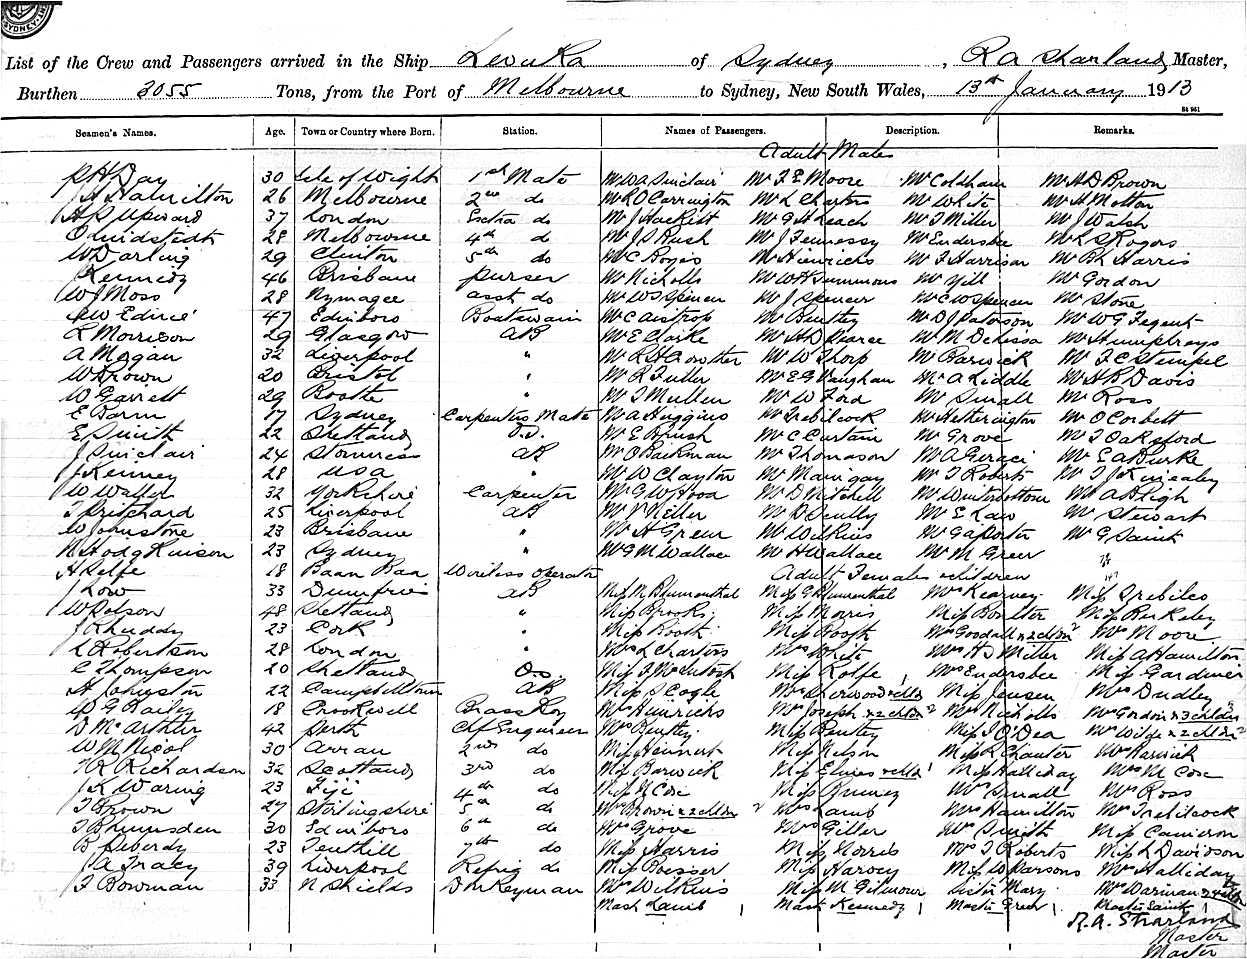 SYDNEY
List of the Crew and Passengers arrived in the Ship Levuka of Sydney, R A Sharland Master,
Burthen 3055 Tons, from the Port of Melbourne to Sydney, New South Wales, 13th January 1913
St 961
Seamen's Names. Age. Town or Country where Born. Station. Names of Passengers. Description. Remarks.
Adult Males
P H Day 30 Isle of Wight 1st Mate Mr W A Sinclair Mr Moore Mr Coldham Mr H D Brown
J H Hamilton 26 Melbourne 2nd do Mr R O Carrington Mr L Charters Mr White Mr H Melton
H S Upward 37 London Extra do Mr J Hackett Mr G H Leach Mr T Miller Mr J Walsh
28 Melbourne 4th do Mr J S Rush Mr J Fennessy Mr Endersbee Mr L S Rogers
W Darling 29 Clinton 5th do Mr C Mr Hinrichs Mr F Harrison Mr Harris
J Kennedy 46 Brisbane purser Mr Nicholls Mr W H Simmons Mr Gill Mr Gordon
W J Moss 28 Nymagee asst do Mr W S Spencer Mr J Spencer Mr C W Spencer Mr Stone
47 Edinboro Boatswain Mr C Mr Bentley Mr D J Paterson Mr W G
L Morrison 29 Glasgow AB Mr E Clarke Mr H D Pearce Mr M Mr Humphreys
A Morgan 32 Liverpool " Mr R H Crowther Mr W Thorp Mr Barwick Mr F C Stempel
W Brown 20 Bristol " Mr R Fuller Mr E G Vaughan Mr A Kiddle Mr H B Davis
W Garrett 29 Bootle " Mr T Mullen Mr W Ford Mr Small Mr Ross
E 17 Sydney Carpenters Mate Mr A Huggins Mr Trebilcock Mr Hetherington Mr O Corbett
E Smith 22 Shetland O.S. Mr E Brush Mr C Curtain Mr Grove Mr T Oaksford
J Sinclair 24 AB Mr O Backman Mr Thomason Mr A Geraci Mr E A Burke
J Kenney 28 USA " Mr W Clayton Mr Mr T Roberts Mr T J Kinealey
W Waller 32 Yorkshire Carpenter Mr G W Hood Mr D Mitchell Mr Winterbottom Mr A High
T Pritchard 25 Liverpool AB Mr Mr D Mr E Law Mr Stewart
W Johnstone 23 Brisbane " Mr H Green Mr Wilkins Mr G A Porter Mr G Saint
N Hodgkinson 23 Sydney " Mr G M Wallace Mr H Wallace Mr M Green
H Relfe 18 Baan Baa Wireless Operator Adult Females & children
J Low 33 Dumfries AB Miss M Blumenthal Miss G Blumenthal Mrs Kearney Miss Trebilco
W 48 Shetland " Miss Brooks Miss Morris Miss Boulter Miss Berkeley
J Rhuddy 23 Cork " Miss Booth Miss Booth Mrs Goodall & 2 chldn 2 Mrs Moore
L Robertson 28 London " Mrs L Charters Mrs White Mrs H D Miller Miss A Hamilton
C Thompson 20 Shetland O.S. Miss F McIntosh Miss Rolfe Mrs Endersbee Miss Gardiner
H Johnston 22 Campbelltown AB Miss S Cogle Mrs Sherwood & chld 1 Miss Jensen Mrs Dudley
W G Bailey 18 Crookwell Brass Boy Mrs Hinrichs Mrs Joseph & 2 chldn 2 Mrs Nicholls Mrs Gordon & 3 chldn 3
D McArthur 42 Perth Chf Engineer Mrs Bentley Miss Bentley Miss J O'Dea Mrs Wilde & 2 chldn 2
W M Nicol 30 Arran 2nd do Miss Hennert Miss Nelson Miss R Chanter Mrs Barwick
R Richardson 32 Scotland 3rd do Miss Barwick Miss Elmes & chld 1 Miss Halliday Mrs M Cose
J R Waring 23 Fiji 4th do Miss N Cose Miss Mrs Small Mrs Ross
T Brown 27 Stirlingshire 5th do Mrs Brown & 2 chldn 2 Mrs Lamb Mrs Hamilton Mrs Trebilcock
T Brumsden 30 Edinboro 6th do Mrs Grove Mrs Giller Mrs Smith Miss Cameron
B 23 Tenthill 7th do Miss Harris Miss Norris Mrs T Roberts Miss L Davidson
J A Tracy 39 Liverpool Refrig do Miss Boesser Miss Harvey Miss W Parsons Mrs Halliday
T Bowman 33 N Shields Dnkeyman Mrs Wilkins Miss M Gilmour Sister Mary Mrs Wariman
Mast Lamb 1 Mast Kennedy 1 Master Green 1 Master Saint 1
R. A. Sharland
Master
Master